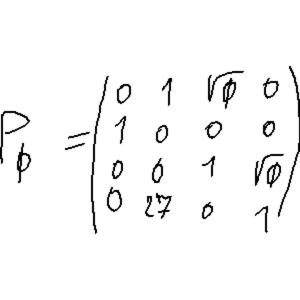 P_ϕ = ( 0 1 √ϕ 0
1 0 0 0
0 0 1 √ϕ
0 27 0 1 )